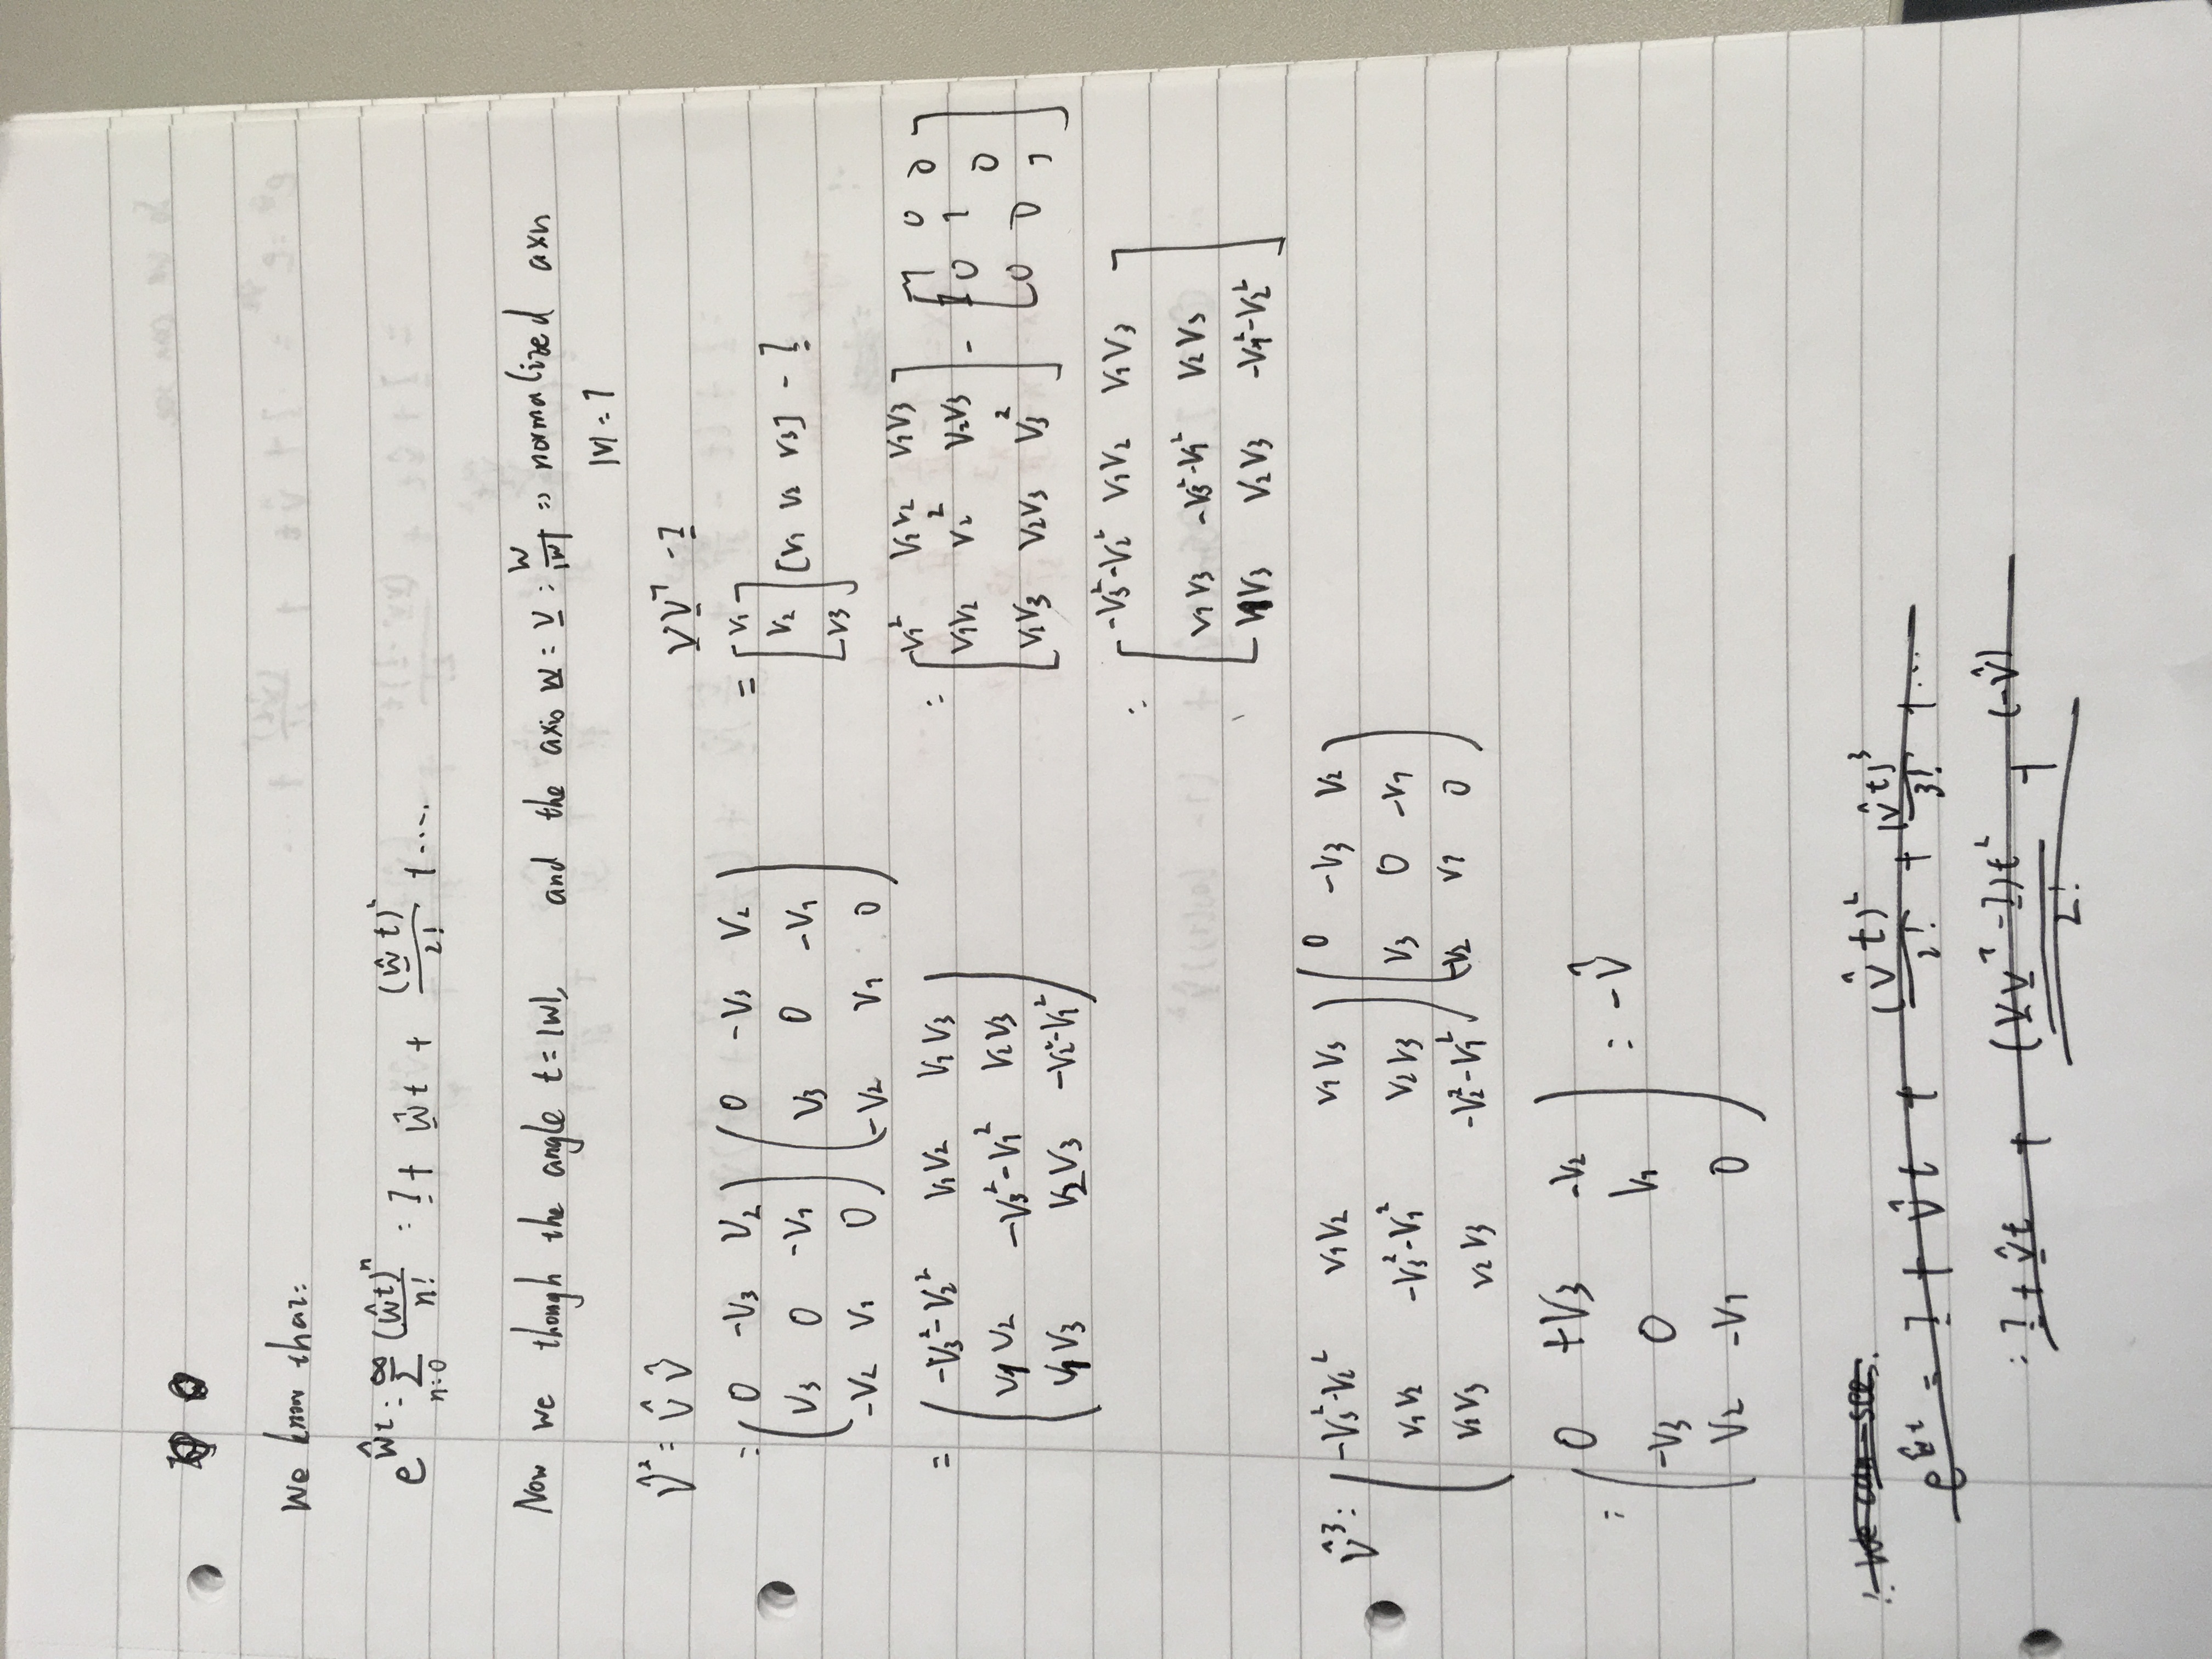 We know that:
e^{ŵt} = \sum_{n=0}^{∞} \frac{(ŵt)^n}{n!} = I + ŵt + \frac{(ŵt)^2}{2!} + ....
Now we though the angle t = |w|, and the axis w = v = \frac{w}{|w|} => normalized axis
|v| = 1
v̂² = v̂ v̂
= ( 0 -v₃ v₂ ) ( 0 -v₃ v₂ )
( v₃ 0 -v₁ ) ( v₃ 0 -v₁ )
( -v₂ v₁ 0 ) ( -v₂ v₁ 0 )
= ( -v₃²-v₂² v₁v₂ v₁v₃ )
( v₁v₂ -v₃²-v₁² v₂v₃ )
( v₁v₃ v₂v₃ -v₂²-v₁² )
v vᵀ - I
= [ v₁ ]
[ v₂ ] [v₁ v₂ v₃] - I
[ v₃ ]
= [ v₁² v₁v₂ v₁v₃ ] - [ 1 0 0 ]
[ v₁v₂ v₂² v₂v₃ ] [ 0 1 0 ]
[ v₁v₃ v₂v₃ v₃² ] [ 0 0 1 ]
= [ -v₃²-v₂² v₁v₂ v₁v₃ ]
[ v₁v₃ -v₃²-v₁² v₂v₃ ]
[ v₁v₃ v₂v₃ -v₁²-v₂² ]
v̂³ = ( -v₃²-v₂² v₁v₂ v₁v₃ ) ( 0 -v₃ v₂ )
( v₁v₂ -v₃²-v₁² v₂v₃ ) ( v₃ 0 -v₁ )
( v₁v₃ v₂v₃ -v₂²-v₁² ) ( -v₂ v₁ 0 )
= ( 0 +v₃ -v₂ )
( -v₃ 0 v₁ ) = -v̂
( v₂ -v₁ 0 )
∴ We can see.
e^{ŵt} = I + v̂t + \frac{(v̂t)^2}{2!} + \frac{(v̂t)^3}{3!} + ...
= I + v̂t + \frac{(v vᵀ - I)t²}{2!} + (-v̂)